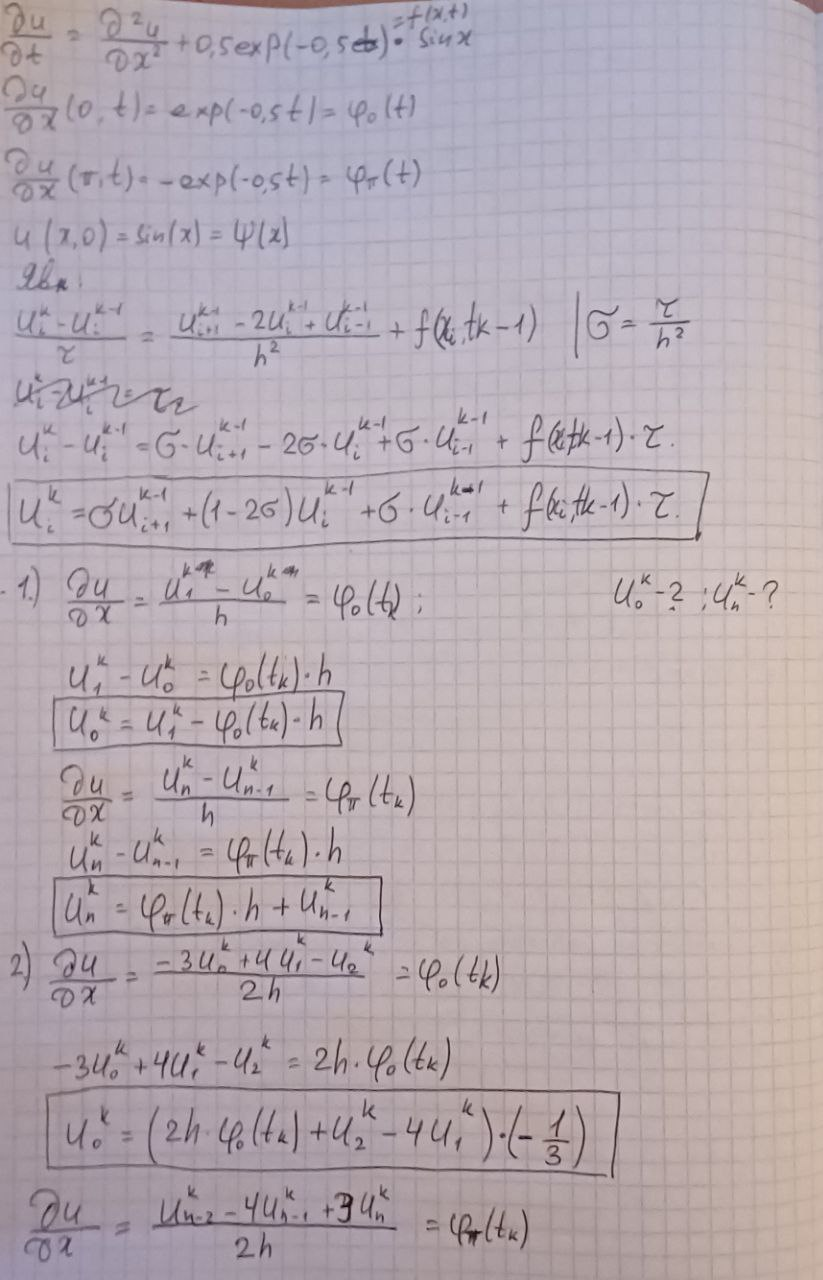 ∂u/∂t = ∂²u/∂x² + 0,5exp(-0,5t)·sinx = f(x,t)
∂u/∂x (0, t) = exp(-0,5t) = φ₀(t)
∂u/∂x (π, t) = -exp(-0,5t) = φπ(t)
u(x,0) = sin(x) = ψ(x)
Явн:
(uᵢᵏ - uᵢᵏ⁻¹)/τ = (uᵢ₊₁ᵏ⁻¹ - 2uᵢᵏ⁻¹ + uᵢ₋₁ᵏ⁻¹)/h² + f(xᵢ,tk-1) | σ = τ/h²
uᵢᵏ - uᵢᵏ⁻¹ = σ·uᵢ₊₁ᵏ⁻¹ - 2σ·uᵢᵏ⁻¹ + σ·uᵢ₋₁ᵏ⁻¹ + f(xᵢ,tk-1)·τ.
uᵢᵏ = σuᵢ₊₁ᵏ⁻¹ + (1-2σ)uᵢᵏ⁻¹ + σ·uᵢ₋₁ᵏ⁻¹ + f(xᵢ,tk-1)·τ.
1.) ∂u/∂x = (u₁ᵏ - u₀ᵏ)/h = φ₀(tₖ); u₀ᵏ - ?; uₙᵏ - ?
u₁ᵏ - u₀ᵏ = φ₀(tₖ)·h
u₀ᵏ = u₁ᵏ - φ₀(tₖ)·h
∂u/∂x = (uₙᵏ - uₙ₋₁ᵏ)/h = φπ(tₖ)
uₙᵏ - uₙ₋₁ᵏ = φπ(tₖ)·h
uₙᵏ = φπ(tₖ)·h + uₙ₋₁ᵏ
2) ∂u/∂x = (-3u₀ᵏ + 4u₁ᵏ - u₂ᵏ)/2h = φ₀(tk)
-3u₀ᵏ + 4u₁ᵏ - u₂ᵏ = 2h·φ₀(tₖ)
u₀ᵏ = (2h·φ₀(tₖ) + u₂ᵏ - 4u₁ᵏ)·(-1/3)
∂u/∂x = (uₙ₋₂ᵏ - 4uₙ₋₁ᵏ + 3uₙᵏ)/2h = φπ(tₖ)